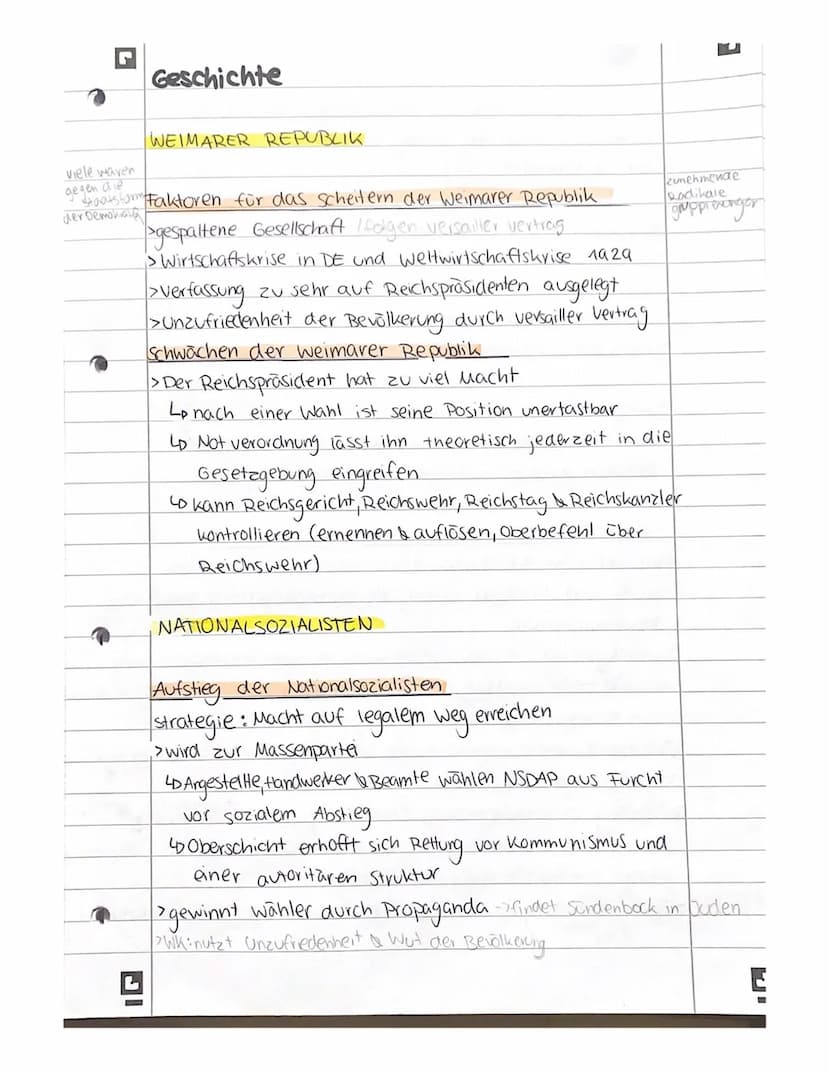 Geschichte
WEIMARER REPUBLIK
viele waren
gegen die
Staatsform
der Demokratie
zunehmende
Radikale
gruppierungen
Faktoren für das Scheitern der Weimarer Republik
>gespaltene Gesellschaft /folgen versailler vertrag
>Wirtschaftskrise in DE und Weltwirtschaftskrise 1929
>Verfassung zu sehr auf Reichspräsidenten ausgelegt
>Unzufriedenheit der Bevölkerung durch versailler Vertrag
Schwächen der Weimarer Republik
>Der Reichspräsident hat zu viel Macht
↳ nach einer Wahl ist seine Position unertastbar
↳ Notverordnung lässt ihn theoretisch jederzeit in die
Gesetzgebung eingreifen
↳ kann Reichsgericht, Reichswehr, Reichstag & Reichskanzler
kontrollieren (ernennen & auflösen, Oberbefehl über
Reichswehr)
NATIONALSOZIALISTEN
Aufstieg der Nationalsozialisten
strategie: Macht auf legalem weg erreichen
>wird zur Massenpartei
↳ Angestellte, Handwerker & Beamte wählen NSDAP aus Furcht
vor sozialem Abstieg
↳ Oberschicht erhofft sich Rettung vor Kommunismus und
einer autoritären Struktur
>gewinnt wähler durch Propaganda ->findet Sündenbock in Juden
>WK: nutzt Unzufriedenheit & Wut der Bevölkerung